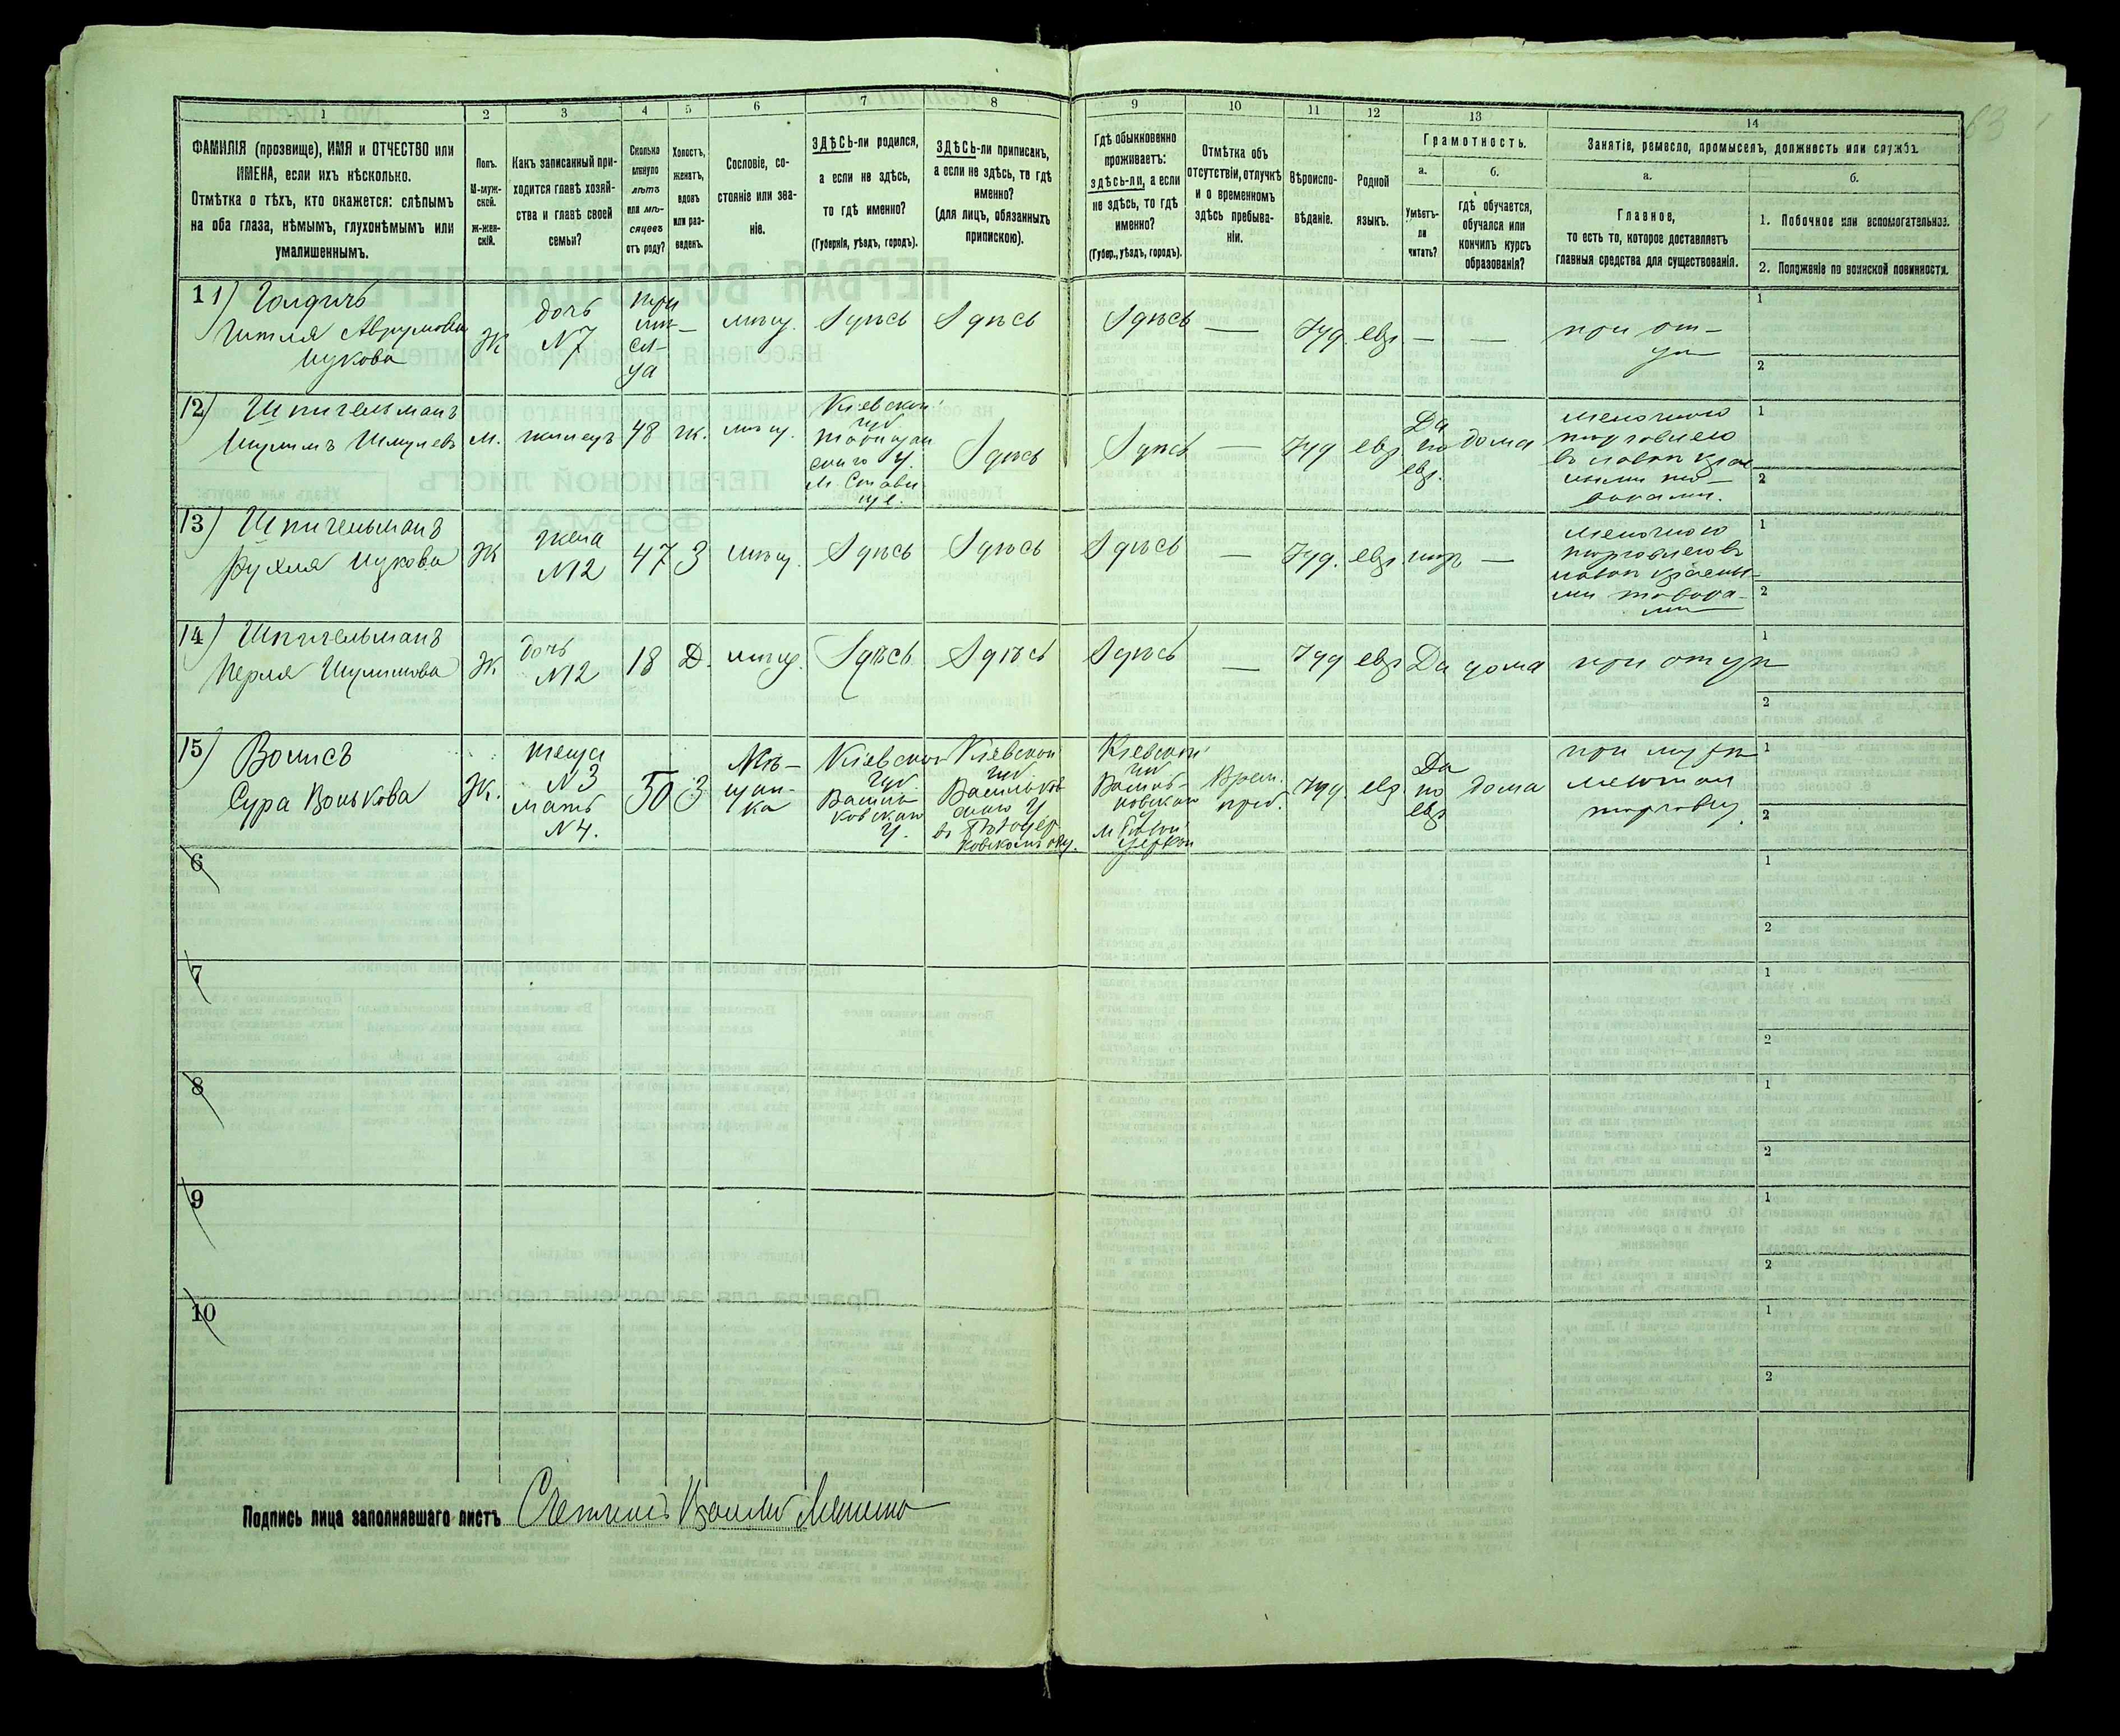 1
2
3
4
5
6
7
8
9
10
11
12
13
14
ФАМИЛІЯ (прозвище), ИМЯ и ОТЧЕСТВО или
ИМЕНА, если ихъ нѣсколько.
Отмѣтка о тѣхъ, кто окажется: слѣпымъ
на оба глаза, нѣмымъ, глухонѣмымъ или
умалишеннымъ.
Полъ.
М-муж-
ской.
Ж-жен-
скій.
Какъ записанный при-
ходится главѣ хозяй-
ства и главѣ своей
семьи?
Сколько
минуло
лѣтъ
или мѣ-
сяцевъ
отъ роду?
Холостъ,
женатъ,
вдовъ
или раз-
веденъ.
Сословіе, со-
стояніе или зва-
ніе.
ЗДѢСЬ-ли родился,
а если не здѣсь,
то гдѣ именно?
(Губернія, уѣздъ, городъ).
ЗДѢСЬ-ли приписанъ,
а если не здѣсь, то гдѣ
именно?
(для лицъ, обязанныхъ
припискою).
Гдѣ обыкновенно
проживаетъ:
здѣсь-ли, а если
не здѣсь, то гдѣ
именно?
(Губер., уѣздъ, городъ).
Отмѣтка объ
отсутствіи, отлучкѣ
и о временномъ
здѣсь пребыва-
ніи.
Вѣроиспо-
вѣданіе.
Родной
языкъ.
Грамотность.
а.
Умѣетъ-
ли
читать?
б.
гдѣ обучается,
обучался или
кончилъ курсъ
образованія?
Занятіе, ремесло, промыселъ, должность или служба.
а.
Главное,
то есть то, которое доставляетъ
главныя средства для существованія.
б.
1. Побочное или вспомогательное.
2. Положеніе по воинской повинности.
11)
Аврумова
Ицкова
Ж
дочь
N7
три
мѣ-
ся-
ца
мѣщ.
Здѣсь
Здѣсь
Здѣсь
—
Іуд.
евр.
—
—
при от-
цѣ
1
2
12)
Шпигельманъ
Шулимъ Шмулевъ
М.
жилецъ
48
ж.
мѣщ.
Кіевской
губ
скаго у.
м. Стави
ще.
Здѣсь
Здѣсь
—
Іуд
евр.
Да
по
евр.
дома
мелочною
торговлею
въ лавкѣ крас
ными то-
варами.
1
2
13)
Шпигельманъ
Рухля Ицкова
Ж
жена
N12
47
З
мѣщ.
Здѣсь
Здѣсь
Здѣсь
—
Іуд.
евр.
—
мелочною
торговлею въ
лавкѣ красны-
ми товара-
ми
1
2
14)
Шпигельманъ
Перля Шулимова
Ж
дочь
N12
18
Д.
мѣщ.
Здѣсь
Здѣсь
Здѣсь
—
Іуд
евр
Да
дома
при отцѣ
1
2
15)
Сура Волькова
Ж.
теща
N3
мать
N4.
50
З
Мѣ-
щан-
ка
Кіевской
губ.
Василь
ковскаго
у.
Кіевской
губ
Васильков
скаго у
Кіевской
губ
Василь-
ковскаго
м Бѣлой
церкви
Врем.
преб.
Іуд.
евр
Да
по
евр
дома
при мужѣ
1
2
6
1
2
7
1
2
8
1
2
9
1
2
10
1
2
Подпись лица заполнявшаго листъ